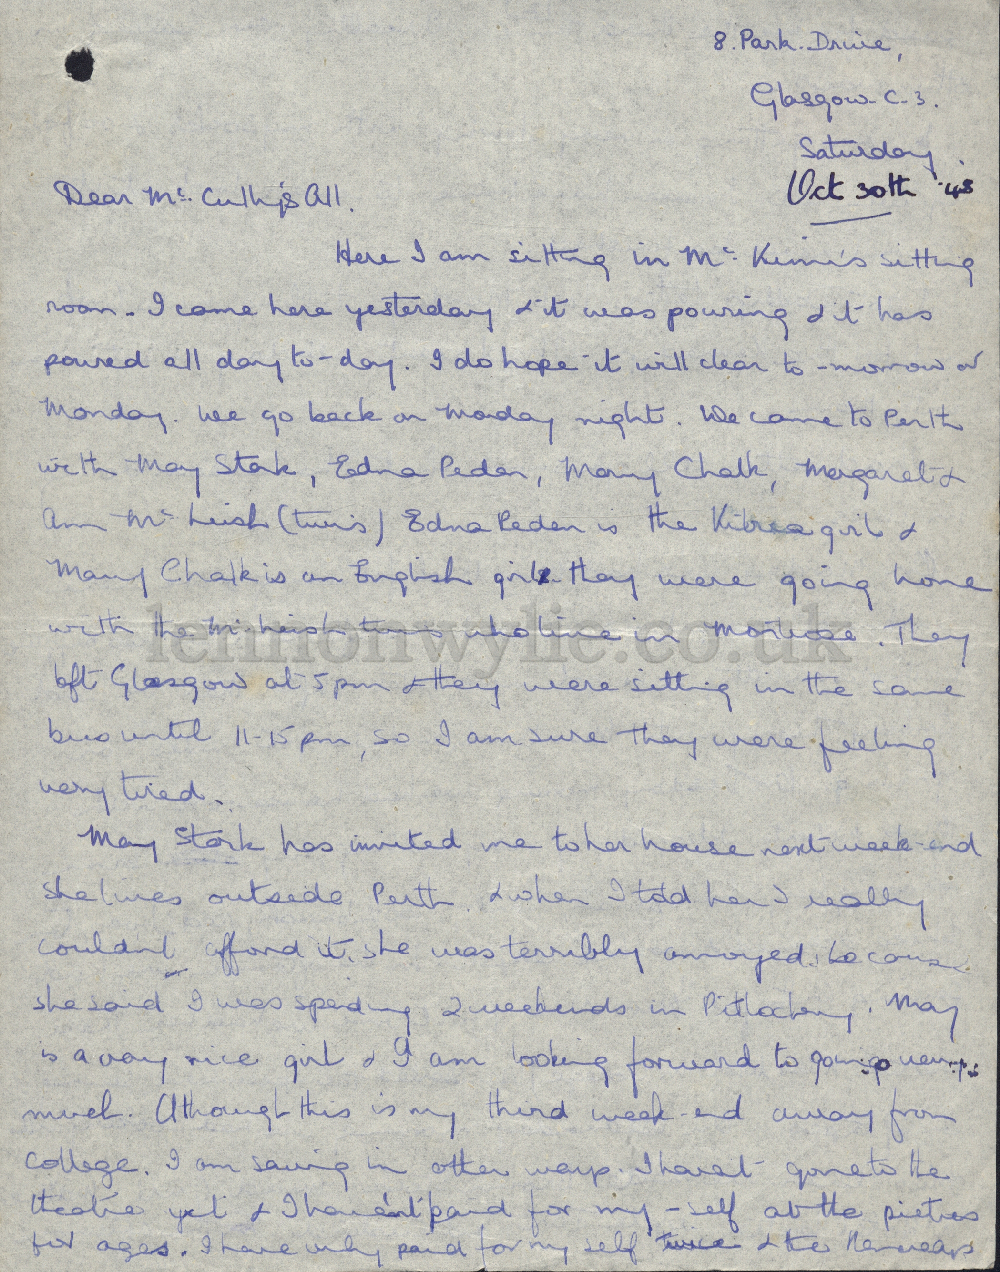 8. Park. Drive,
Glasgow. C. 3.
Saturday.
Oct 30th '48
Dear Mc. All.
Here I am sitting in Mc. sitting
room. I came here yesterday & it was pouring & it has
poured all day to-day. I do hope it will clear to-morrow or
Monday. We go back on Monday night. We came to Perth
with May Stark, Edna Peden, Mary Chalk, Margaret &
Ann Mc Leish (twins) Edna Peden is the Kilrea girl &
Mary Chalk is an English girl they were going home
with the Mc Leish twins who live in Montrose. They
lennonwylie.co.uk
left Glasgow at 5pm & they were sitting in the same
bus until 11-15pm, so I am sure they were feeling
very tired.
May Stark has invited me to her house next week-end
she lives outside Perth & when I told her I really
couldn't afford it, she was terribly annoyed because
she said I was spending 2 weekends in Pitlochry. May
is a very nice girl & I am looking forward to going very
much. Although this is my third week-end away from
college. I am saving in other ways. I havent gone to the
theatre yet & I haven't paid for my-self at the pictures
for ages. I have only paid for my self twice & the